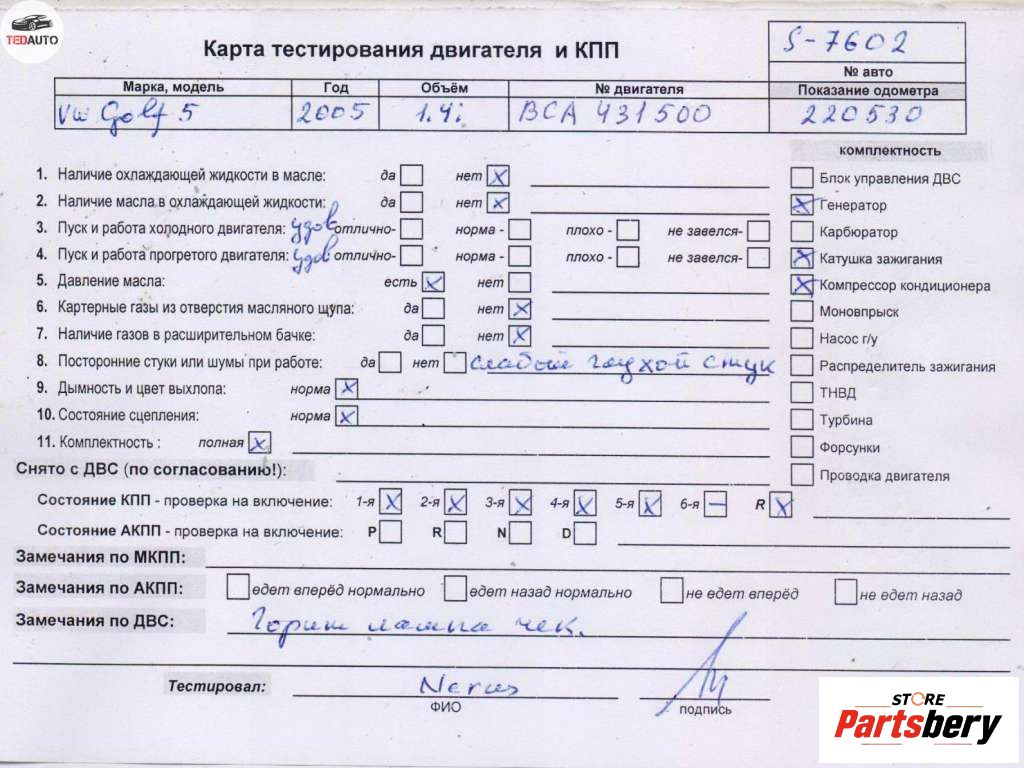 TEDAUTO
Карта тестирования двигателя и КПП
S-7602
№ авто
Марка, модель Год Объём № двигателя Показание одометра
VW Golf 5 2005 1.4i BCA 431500 220530
комплектность
1. Наличие охлаждающей жидкости в масле: да нет x
Блок управления ДВС
2. Наличие масла в охлаждающей жидкости: да нет x
x Генератор
3. Пуск и работа холодного двигателя: удов отлично- норма - плохо - не завелся-
Карбюратор
4. Пуск и работа прогретого двигателя: удов отлично- норма - плохо - не завелся-
x Катушка зажигания
5. Давление масла: есть x нет
x Компрессор кондиционера
6. Картерные газы из отверстия масляного щупа: да нет x
Моновпрыск
7. Наличие газов в расширительном бачке: да нет x
Насос г/у
8. Посторонние стуки или шумы при работе: да нет слабый глухой стук
Распределитель зажигания
9. Дымность и цвет выхлопа: норма x
ТНВД
10. Состояние сцепления: норма x
Турбина
11. Комплектность : полная x
Форсунки
Снято с ДВС (по согласованию!):
Проводка двигателя
Состояние КПП - проверка на включение: 1-я x 2-я x 3-я x 4-я x 5-я x 6-я – R x
Состояние АКПП - проверка на включение: P R N D
Замечания по МКПП:
Замечания по АКПП: едет вперёд нормально едет назад нормально не едет вперёд не едет назад
Замечания по ДВС: Горит лампа чек.
Тестировал:
ФИО
подпись
STORE
Partsbery